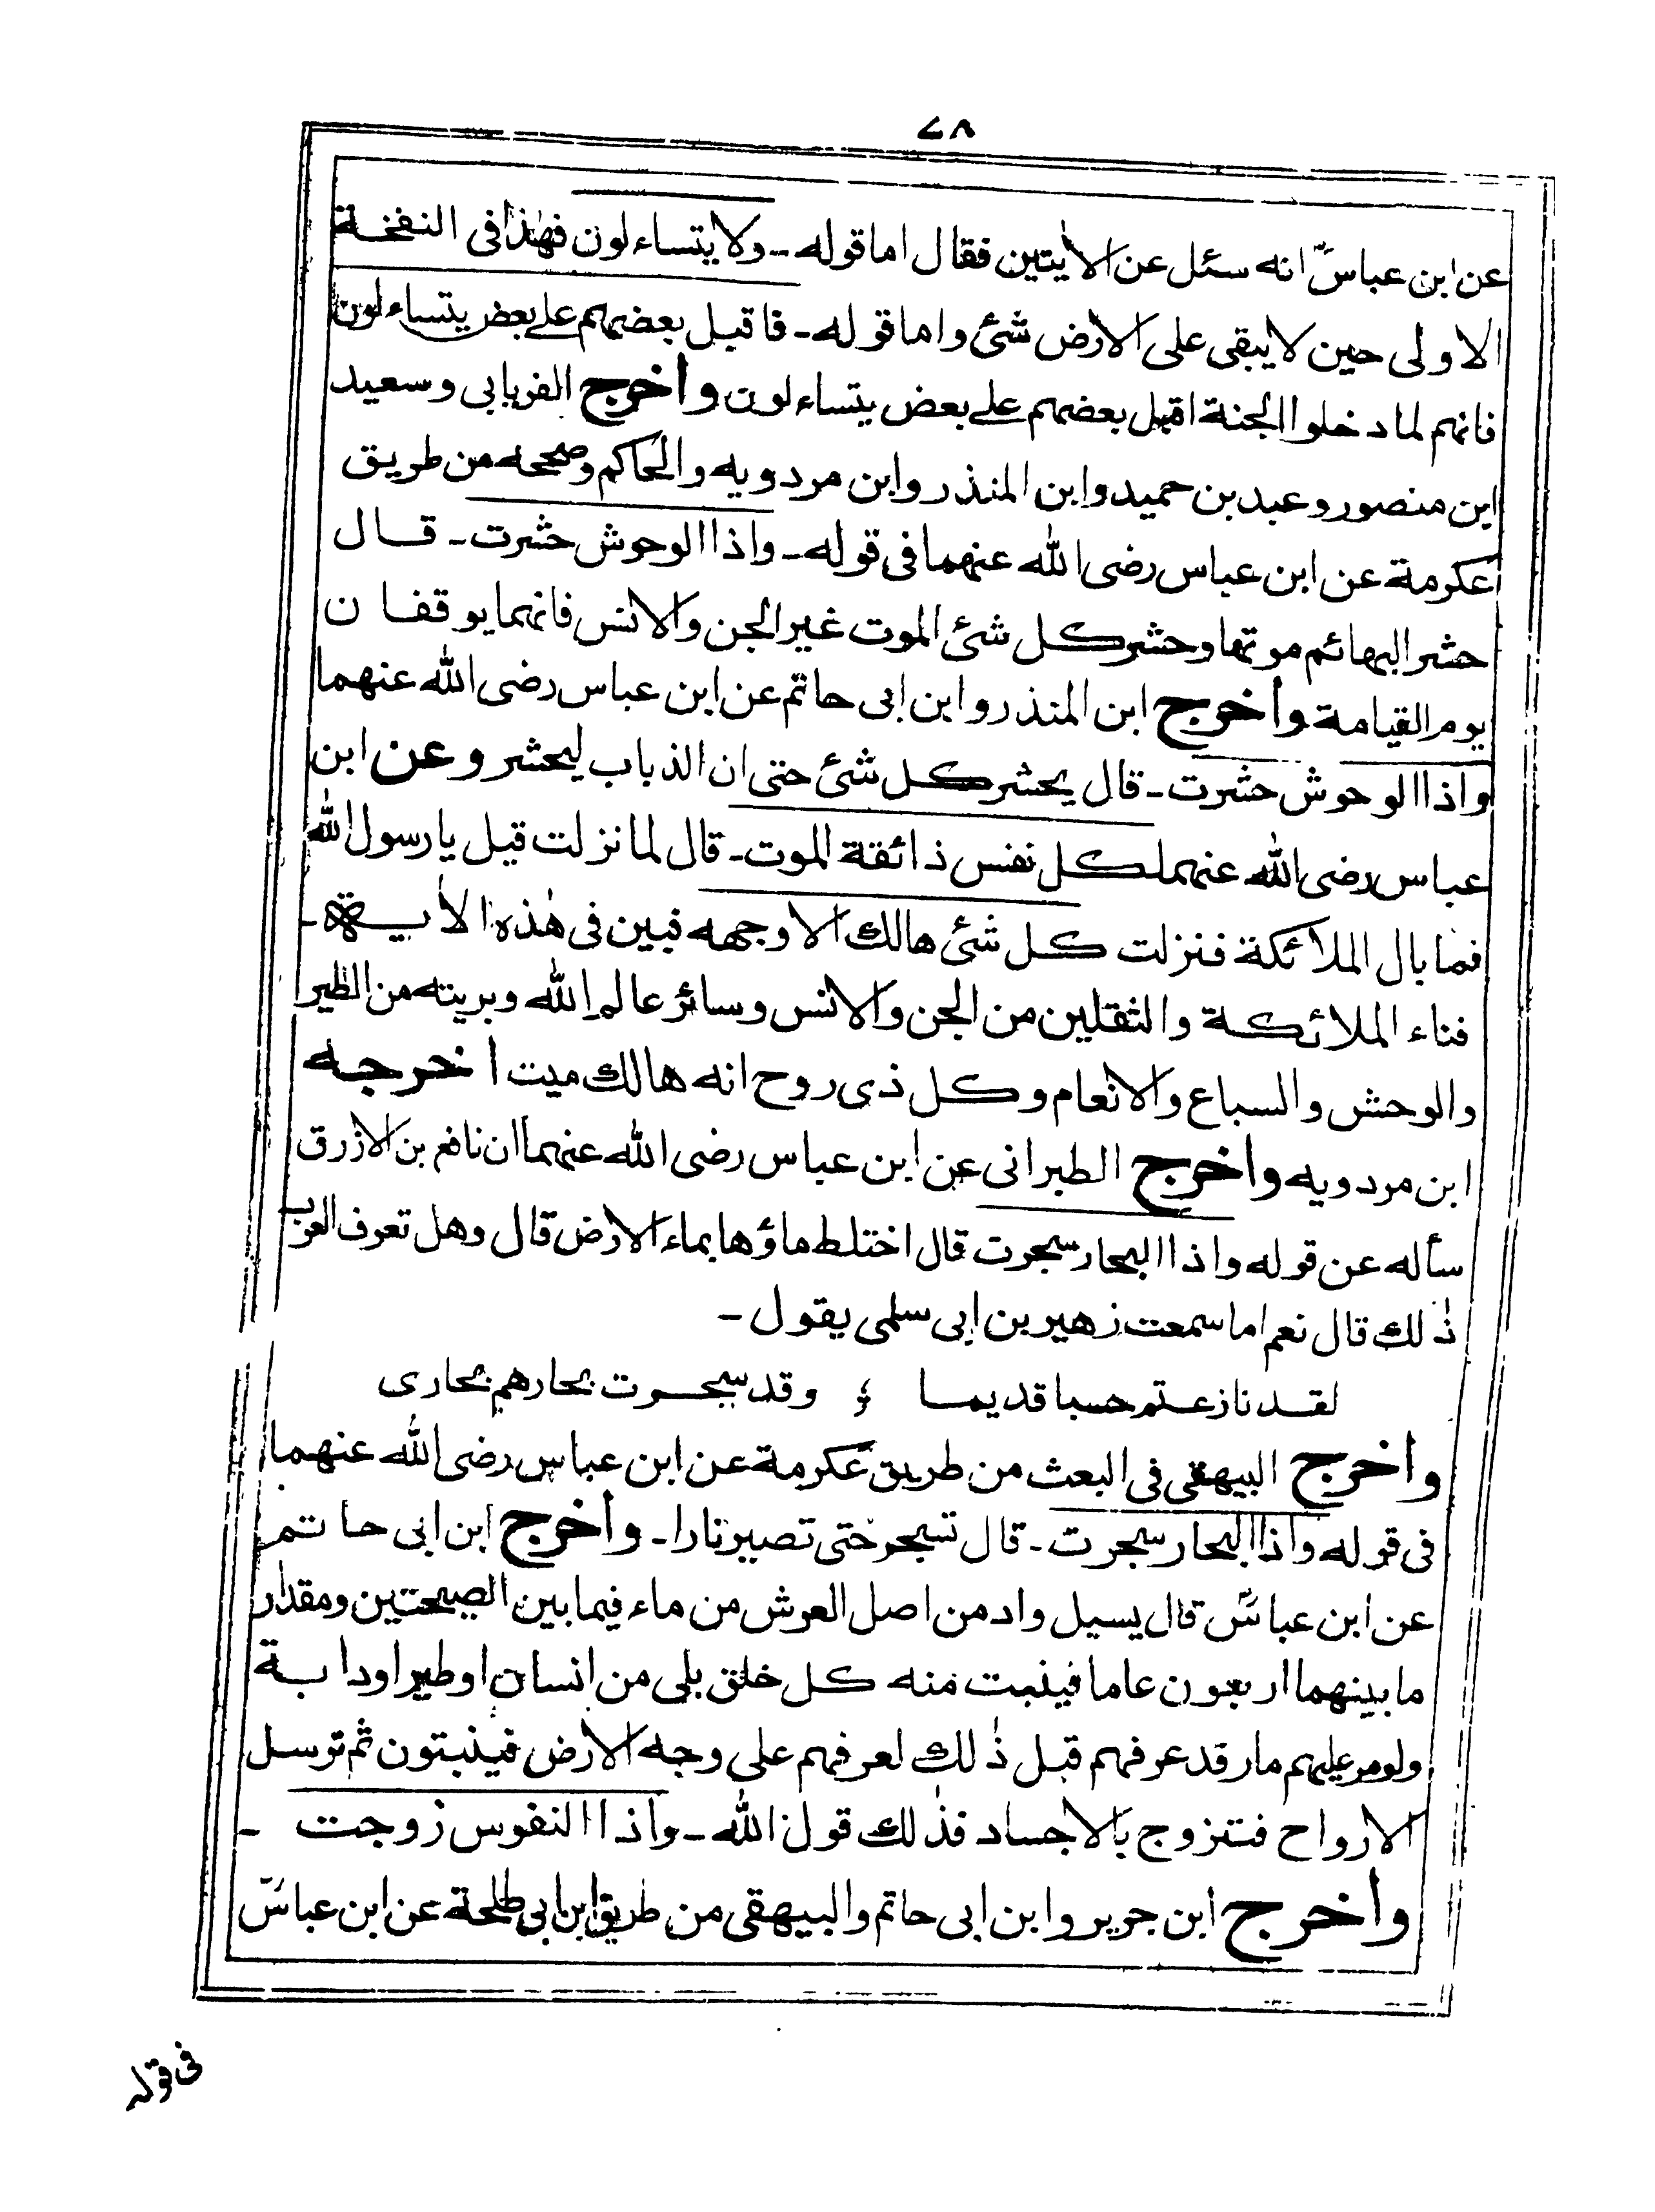 ٧٨
عن ابن عباسؓ انه سئل عن الاٰيتين فقال اما قوله ـ ولا يتساءلون فهٰذا فى النفخة
الاولى حين لا يبقى على الارض شئ واما قوله ـ فاقبل بعضهم علے بعض يتساءلون
فانهم لما دخلوا الجنة اقبل بعضهم علے بعض يتساءلون وأخرج الفريابى وسعيد
ابن منصور وعبد بن حميد وابن المنذر وابن مردويه والحاكم وصححه من طريق
عكرمة عن ابن عباس رضى الله عنهما فى قوله ـ واذا الوحوش حشرت ـ قال
حشر البهائم موتها وحشر كل شئ الموت غير الجن والانس فانهما يوقفان
يوم القيامة وأخرج ابن المنذر وابن ابى حاتم عن ابن عباس رضى الله عنهما
واذا الوحوش حشرت ـ قال يحشر كل شئ حتى ان الذباب ليحشر وعن ابن
عباس رضى الله عنهما كل نفس ذائقة الموت ـ قال لما نزلت قيل يا رسول الله
فما بال الملائكة فنزلت كل شئ هالك الا وجهه فبين فى هٰذه الاٰية ـ
فناء الملائكة والثقلين من الجن والانس وسائر عالم الله وبريته من الطير
والوحش والسباع والانعام وكل ذى روح انه هالك ميت أخرجه
ابن مردويه وأخرج الطبرانى عن ابن عباس رضى الله عنهما ان نافع بن الازرق
سأله عن قوله واذا البحار سجرت قال اختلط ماؤها بماء الارض قال وهل تعرف العرب
ذٰلك قال نعم اما سمعت زهير بن ابى سلمى يقول ـ
لقد نازعتم حسبا قديما ؛ وقد سجرت بحارهم بحارى
وأخرج البيهقى فى البعث من طريق عكرمة عن ابن عباس رضى الله عنهما
فى قوله واذا البحار سجرت ـ قال تسجر حتى تصير نارا ـ وأخرج ابن ابى حاتم
عن ابن عباسؓ قال يسيل واد من اصل العرش من ماء فيما بين الصيحتين ومقدار
ما بينهما اربعون عاما فينبت منه كل خلق بلى من انسان او طير او دابة
ولو مر عليهم مار قد عرفهم قبل ذٰلك لعرفهم على وجه الارض فينبتون ثم ترسل
الارواح فتزوج بالاجساد فذٰلك قول الله ـ واذا النفوس زوجت ـ
وأخرج ابن جرير وابن ابى حاتم والبيهقى من طريق ابن ابى طلحة عن ابن عباسؓ
فى قوله